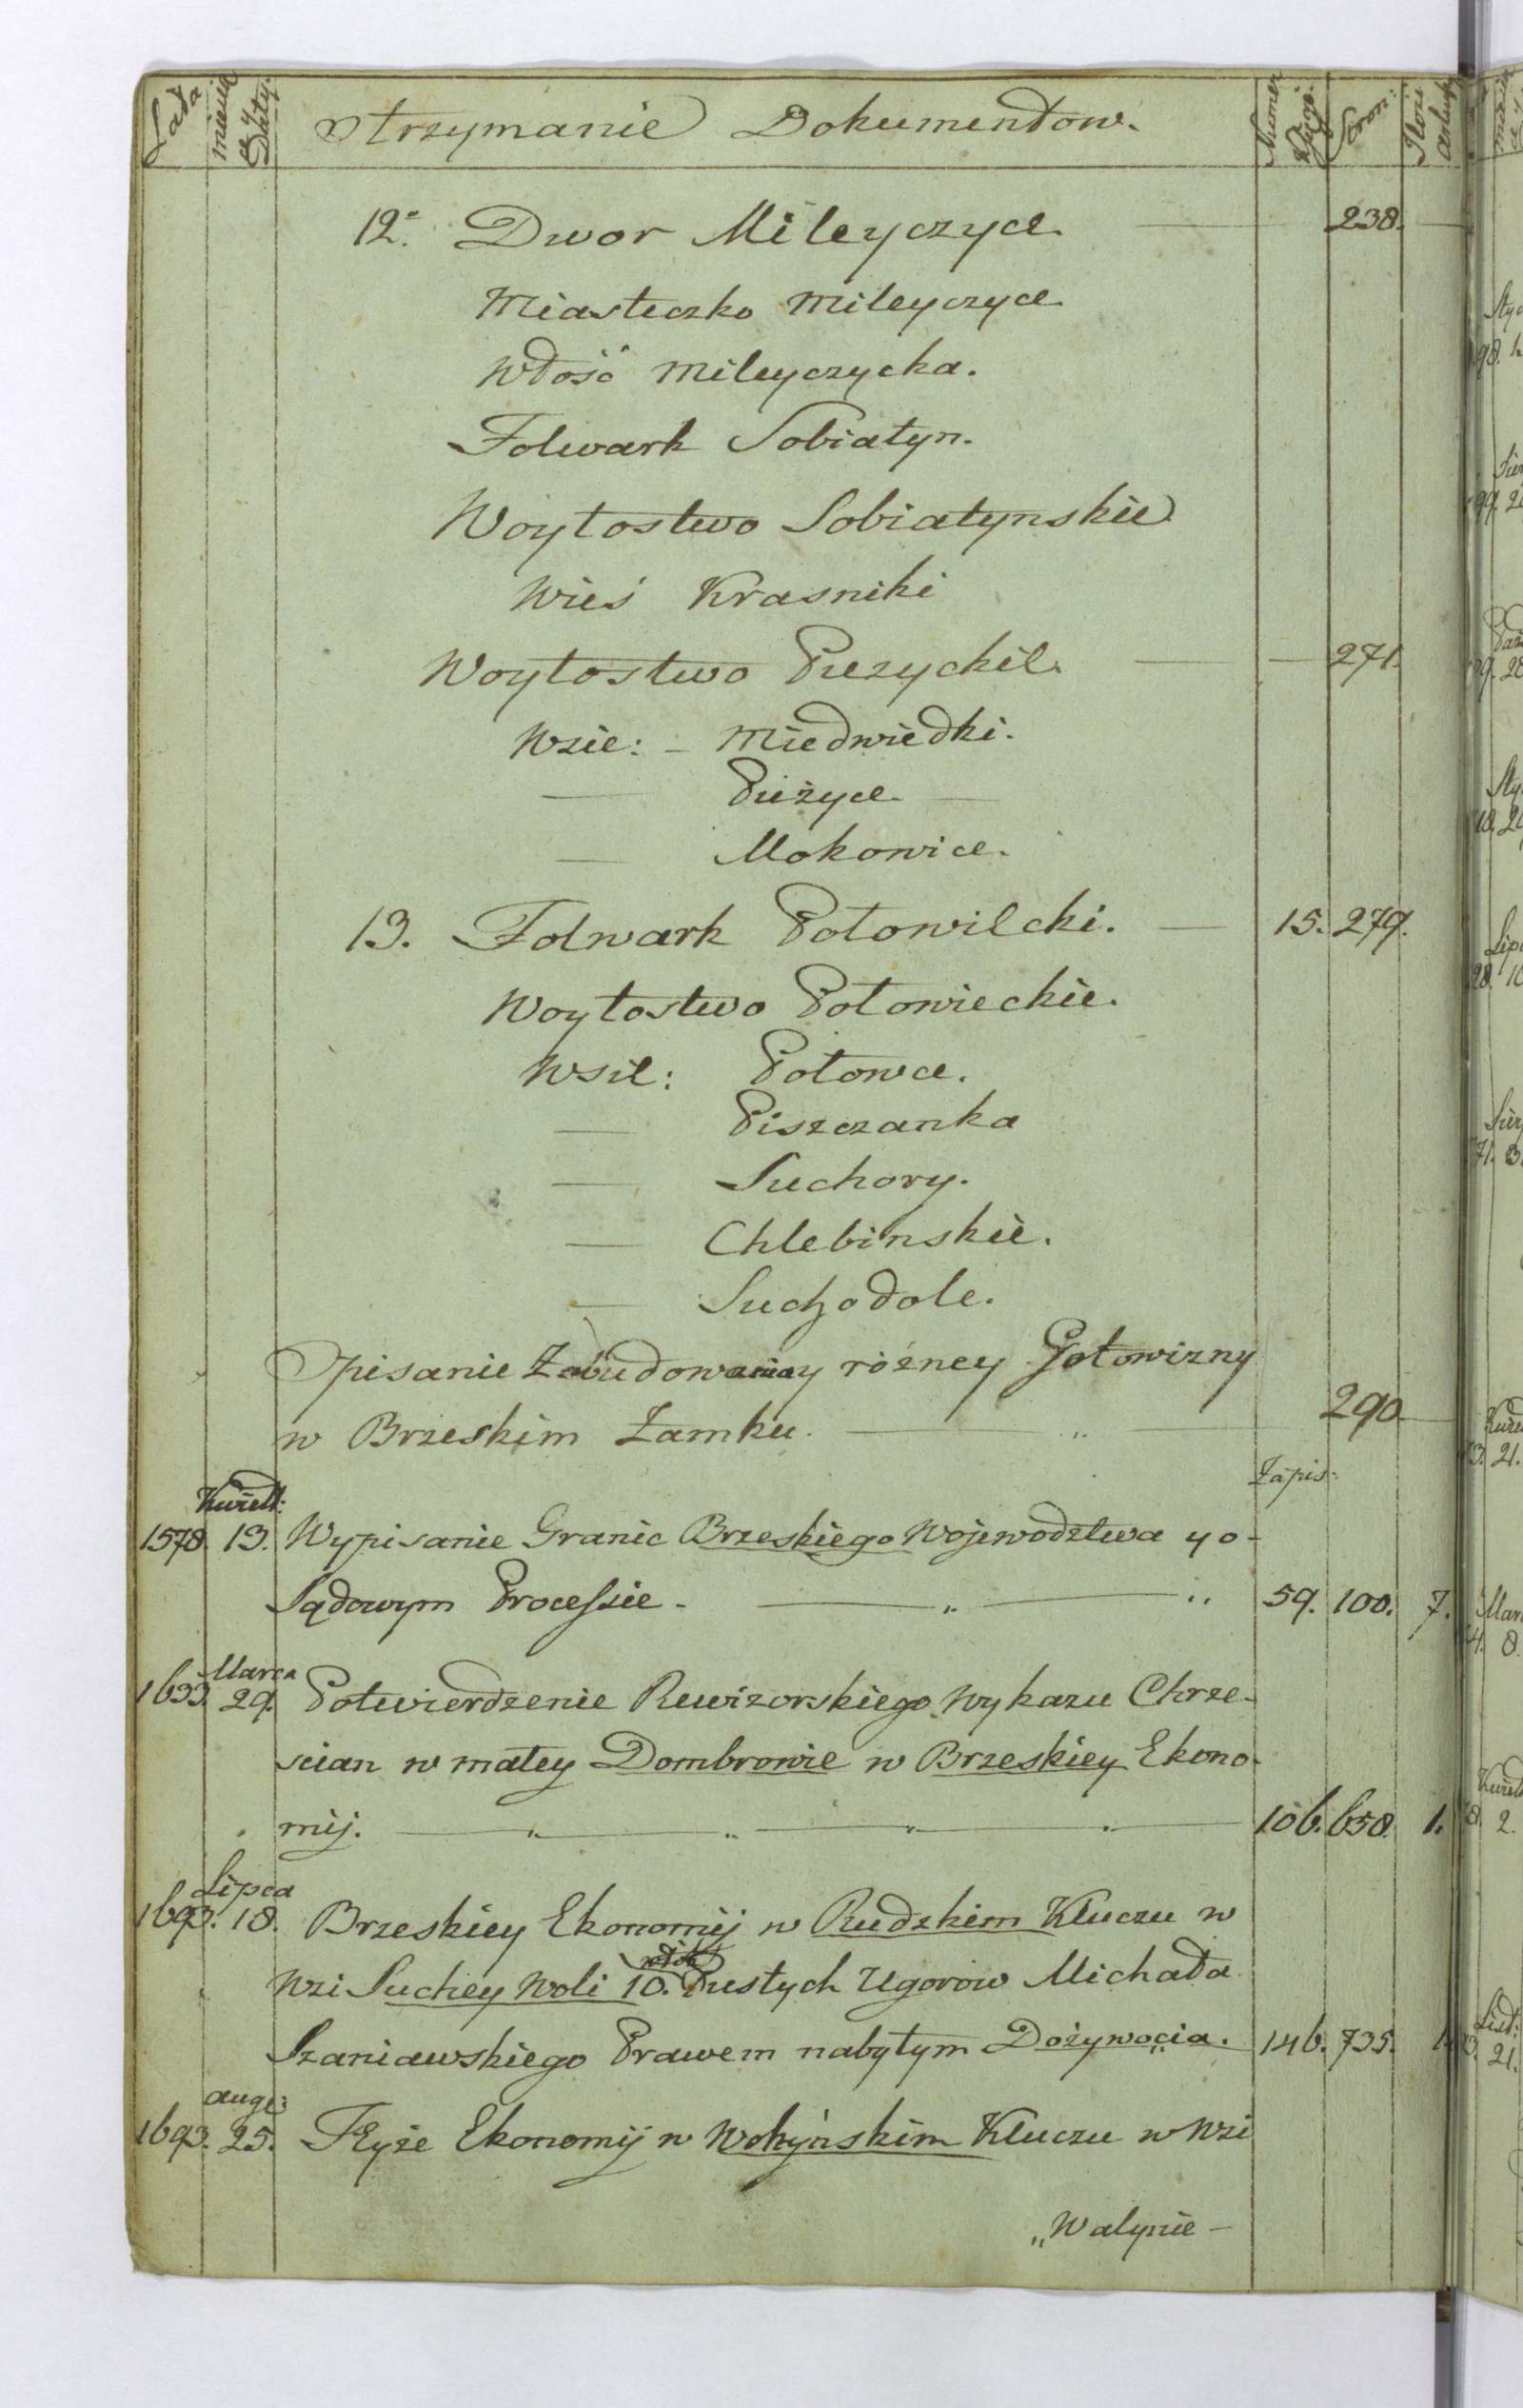 Lata
miesiąc y Daty.
Otrzymanie Dokumentow.
Numer Księgi.
Stron:
12. Dwor Mileyczyce. 238.
Miasteczko Mileyczyce
Włość Mileyczycka.
Folwark Sobiatyn.
Woytostwo Sobiatynskie
Wieś Krasniki
Woytostwo Puzyckie. 271.
Wsie: Miedwiedki.
Pużyce.
Mokowice.
13. Folwark Połowiecki. 15. 279.
Woytostwo Połowieckie.
Wsie: Połowce.
Piszczanka
Suchory.
Chlebinskie.
Suchodole.
Opisanie Zabudowania y rożney Gotowizny
w Brzeskim Zamku. 290
Zapis:
Kwiet:
1578. 13. Wypisanie Granic Brzeskiego Wojewodztwa y o-
Sądowym Processie. 59. 100. 7.
Marca
1633. 29. Potwierdzenie Rewizorskiego wykazu Chrze-
scian w małey Dombrowie w Brzeskiey Ekono-
mij. 106. 658. 1.
Lipca
1693. 18. Brzeskiey Ekonomij w Rudzkim Kluczu w
włok
Wsi Suchey Woli 10. Pustych Ugorow Michała
Szaniawskiego Prawem nabytym Dożywocia. 146. 735. 1.
augs:
1693. 25. Teyże Ekonomij w Wohyńskim Kluczu w Wsi
„Walynie -